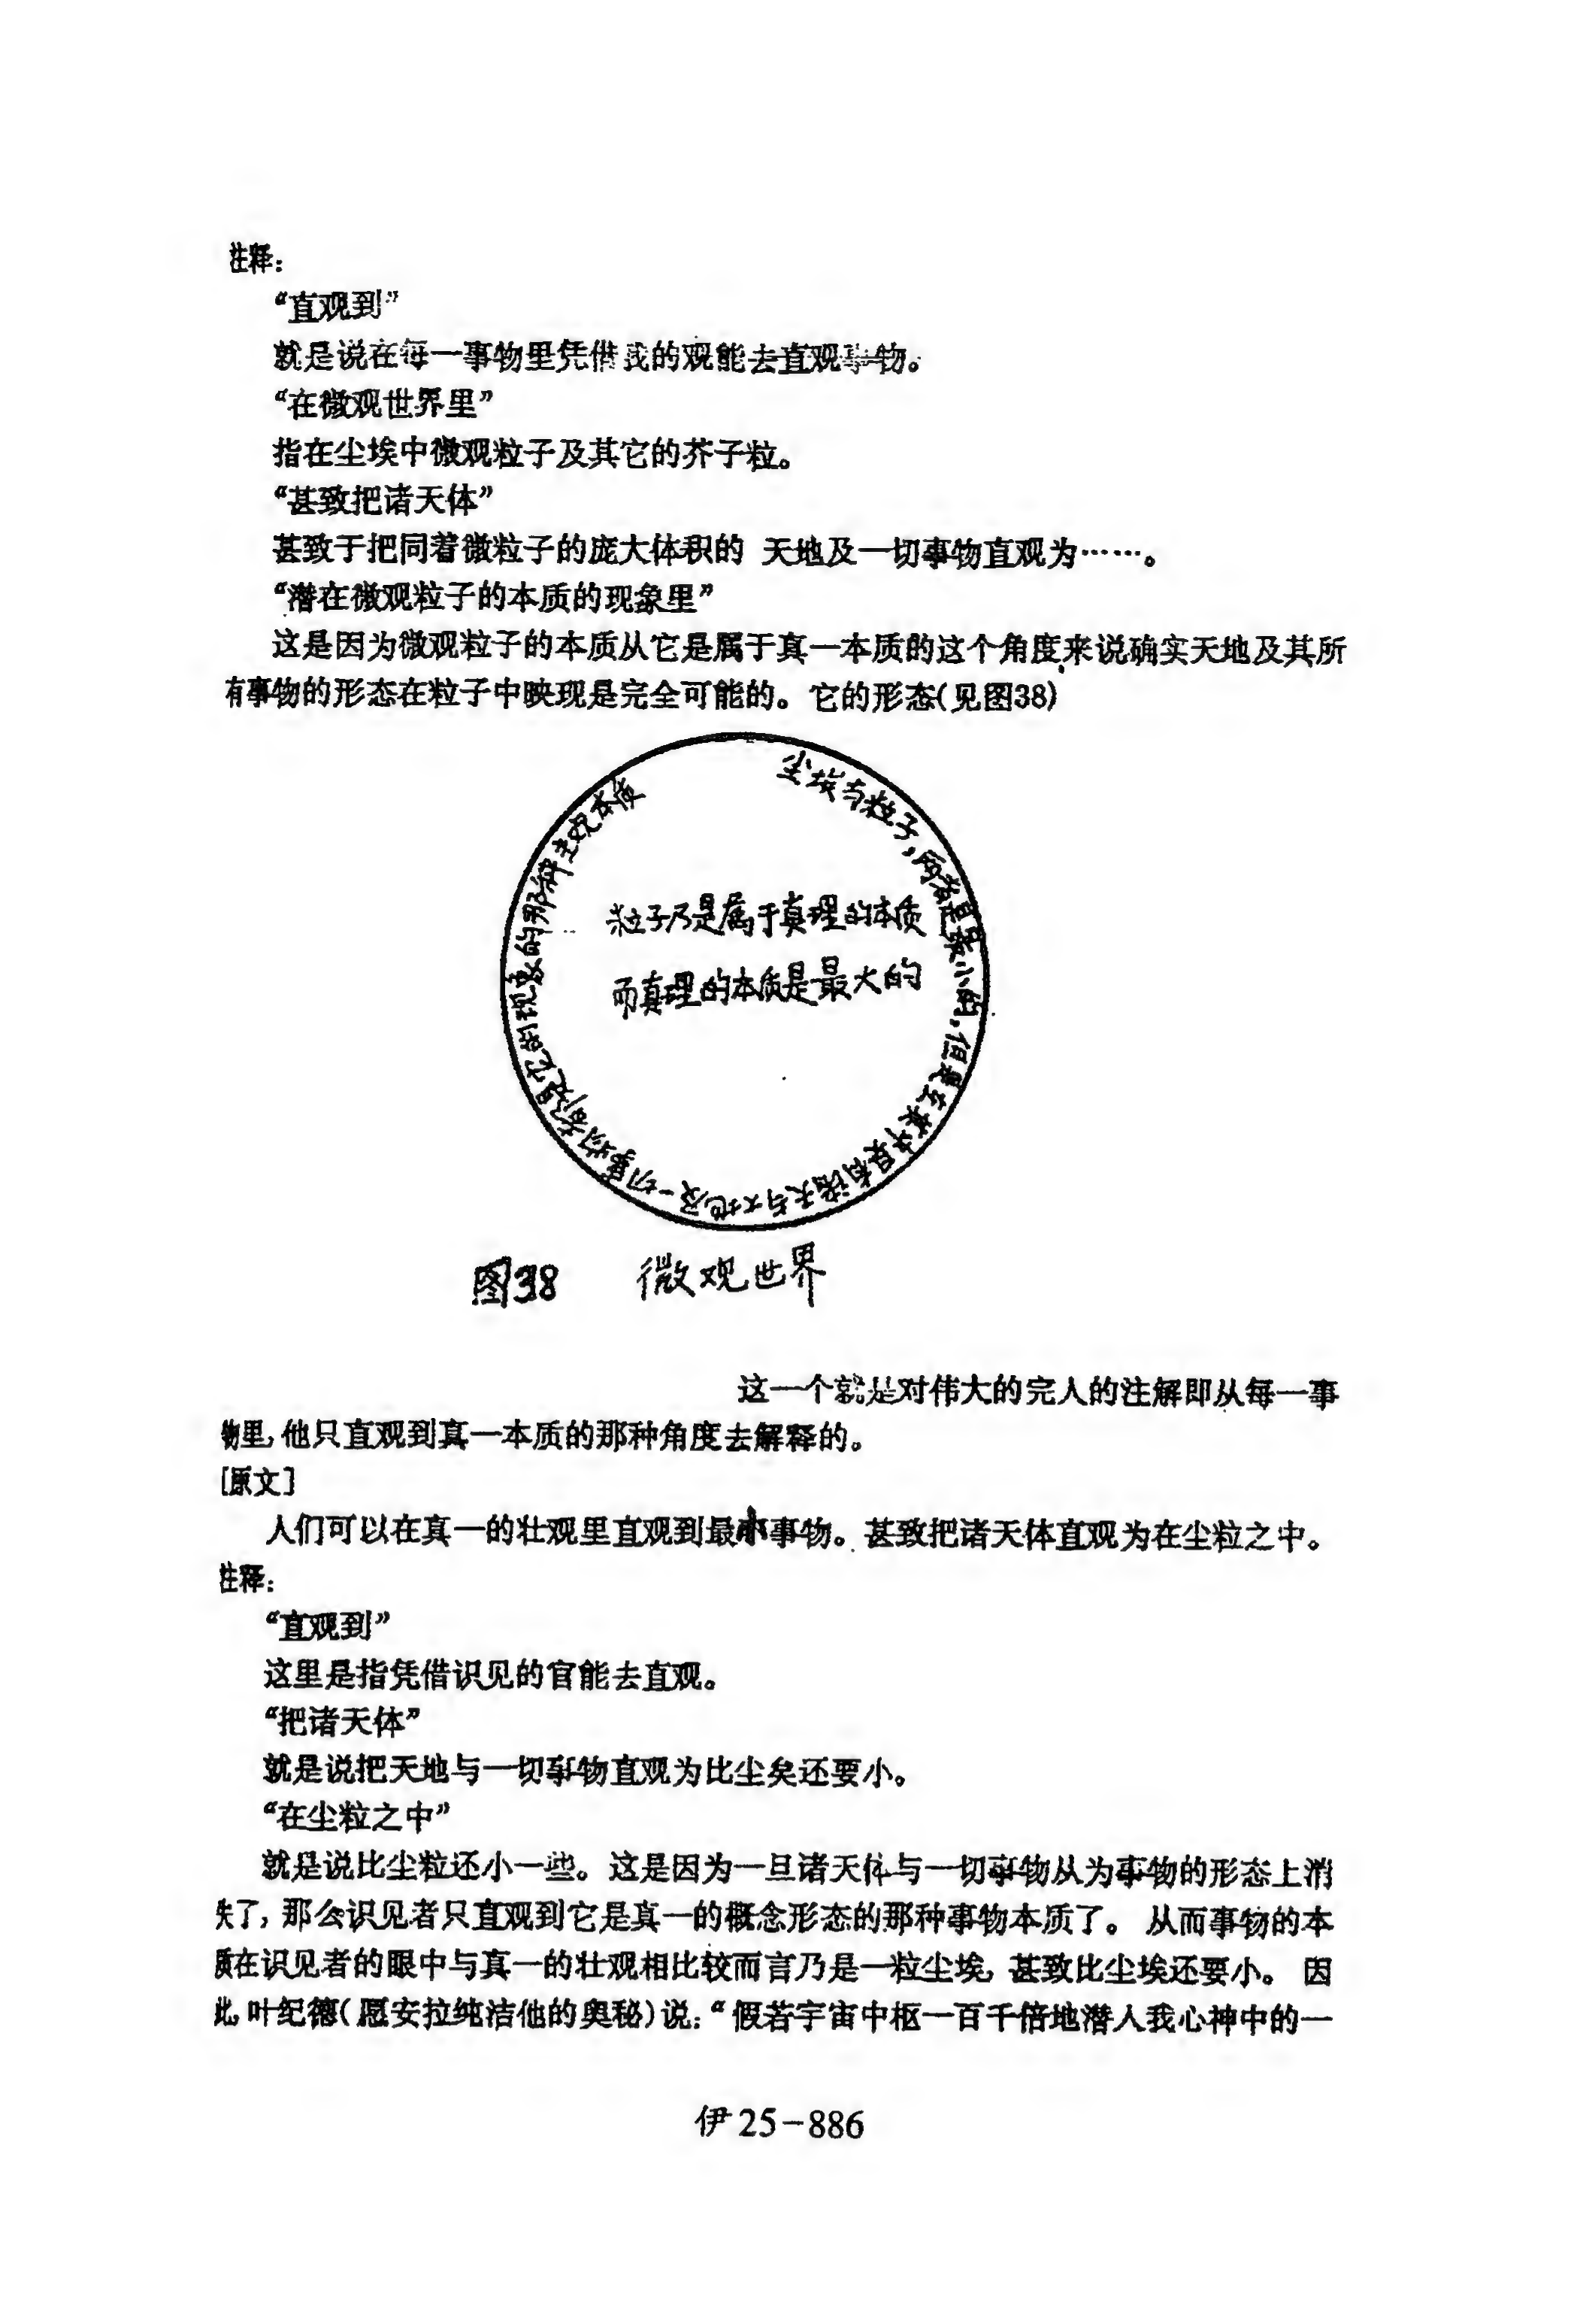 注释：
“直观到”
就是说在每一事物里凭借我的观能去直观事物。
“在微观世界里”
指在尘埃中微观粒子及其它的芥子粒。
“甚致把诸天体”
甚致于把同着微粒子的庞大体积的 天地及一切事物直观为……。
“潜在微观粒子的本质的现象里”
这是因为微观粒子的本质从它是属于真一本质的这个角度来说确实天地及其所
有事物的形态在粒子中映现是完全可能的。它的形态(见图38)
尘埃与粒子,两者是最小的,但是在其中具有诸天与大地及一切事物都是它的现象的那种主观本质
粒子乃是属于真理的本质
而真理的本质是最大的
图38 微观世界
这一个就是对伟大的完人的注解即从每一事
物里,他只直观到真一本质的那种角度去解释的。
[原文]
人们可以在真一的壮观里直观到最小事物。甚致把诸天体直观为在尘粒之中。
注释：
“直观到”
这里是指凭借识见的官能去直观。
“把诸天体”
就是说把天地与一切事物直观为比尘矣还要小。
“在尘粒之中”
就是说比尘粒还小一些。这是因为一旦诸天体与一切事物从为事物的形态上消
失了,那么识见者只直观到它是真一的概念形态的那种事物本质了。 从而事物的本
质在识见者的眼中与真一的壮观相比较而言乃是一粒尘埃,甚致比尘埃还要小。 因
此,叶纪德(愿安拉纯洁他的奥秘)说:“假若宇宙中枢一百千倍地潜人我心神中的一
伊25-886